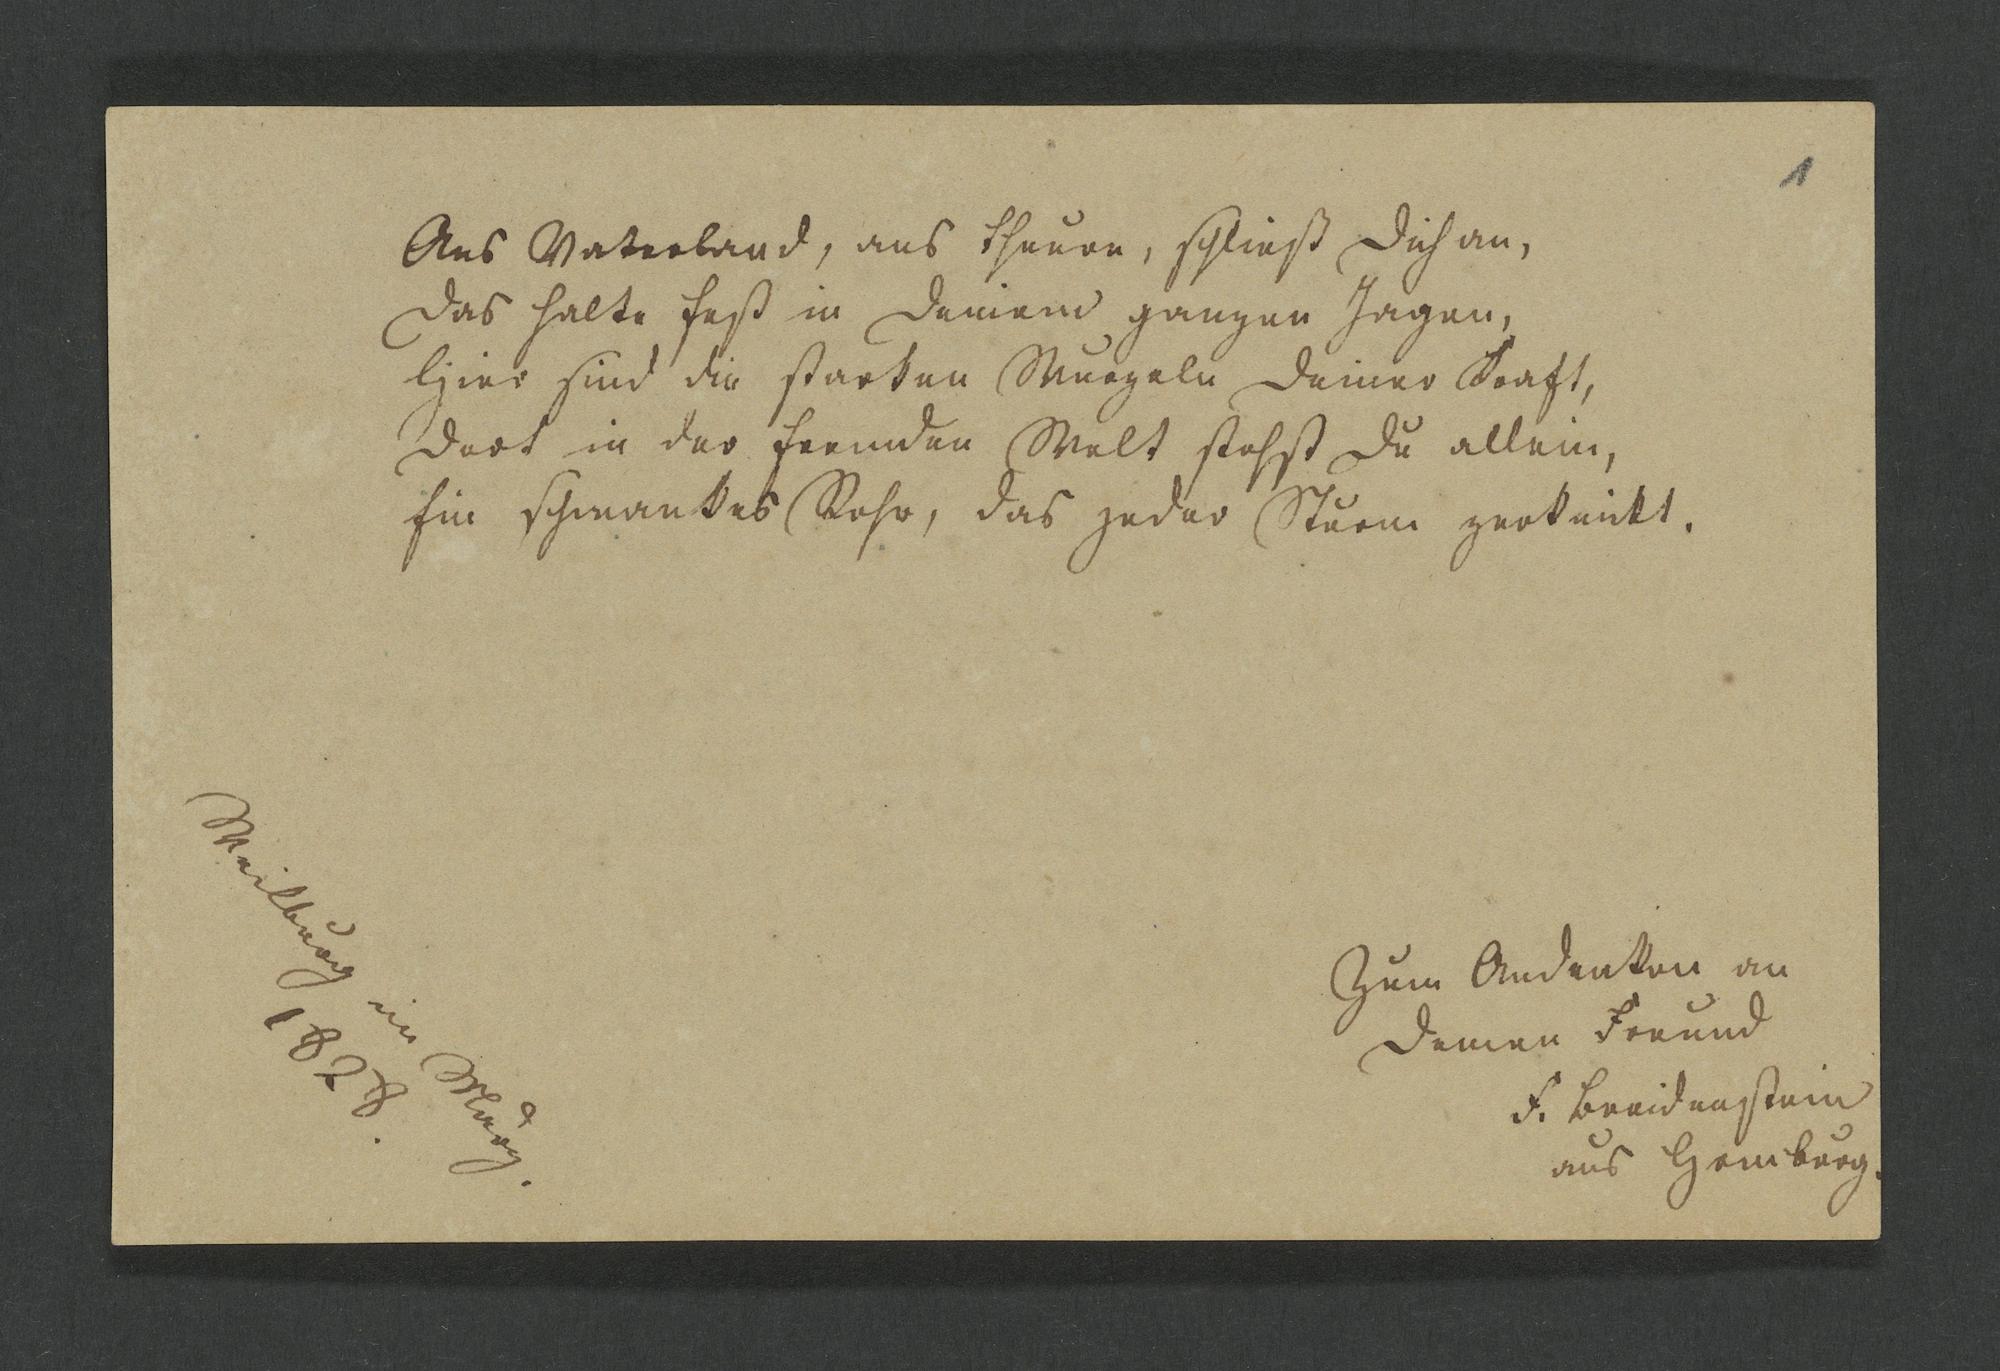 1
Ans Vaterland, ans theure, schließ Dich an,
Das halte fest in Deinem ganzen
Hier sind die starken Wurzeln Deiner Kraft,
Dort in der fremden Welt stehst Du allein,
Ein schwankes Rohr, das jeder Sturm zerknickt.
Weilburg im März.
1828.
Zum Andenken an
Deinen Freund
F. Breidenstein
aus Homburg.